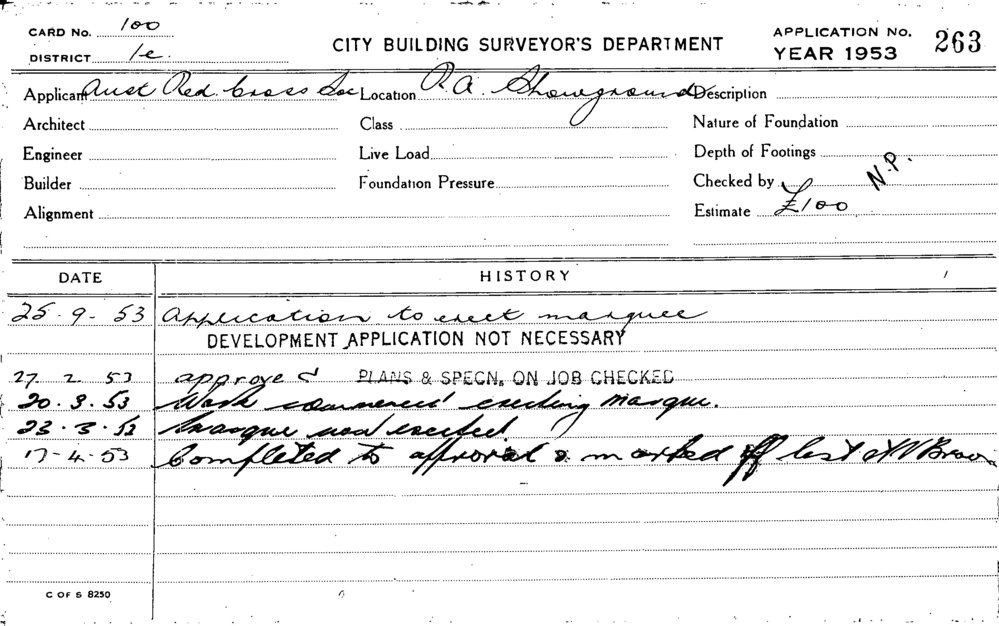 CARD No. 100
DISTRICT 1e
CITY BUILDING SURVEYOR'S DEPARTMENT
APPLICATION No. 263
YEAR 1953
Applicant Aust Red. Cross Soc Location R.A. Showground Description
Architect Class Nature of Foundation
Engineer Live Load Depth of Footings
Builder Foundation Pressure Checked by N.P.
Alignment Estimate £100
DATE HISTORY
25.9.53 Application to erect marquee
DEVELOPMENT APPLICATION NOT NECESSARY
27.2.53 approved PLANS & SPECN. ON JOB CHECKED
20.3.53 Work commenced erecting marque.
23.3.53 marque now erected.
17-4.53 Completed to approval & marked off list
C OF S 8250